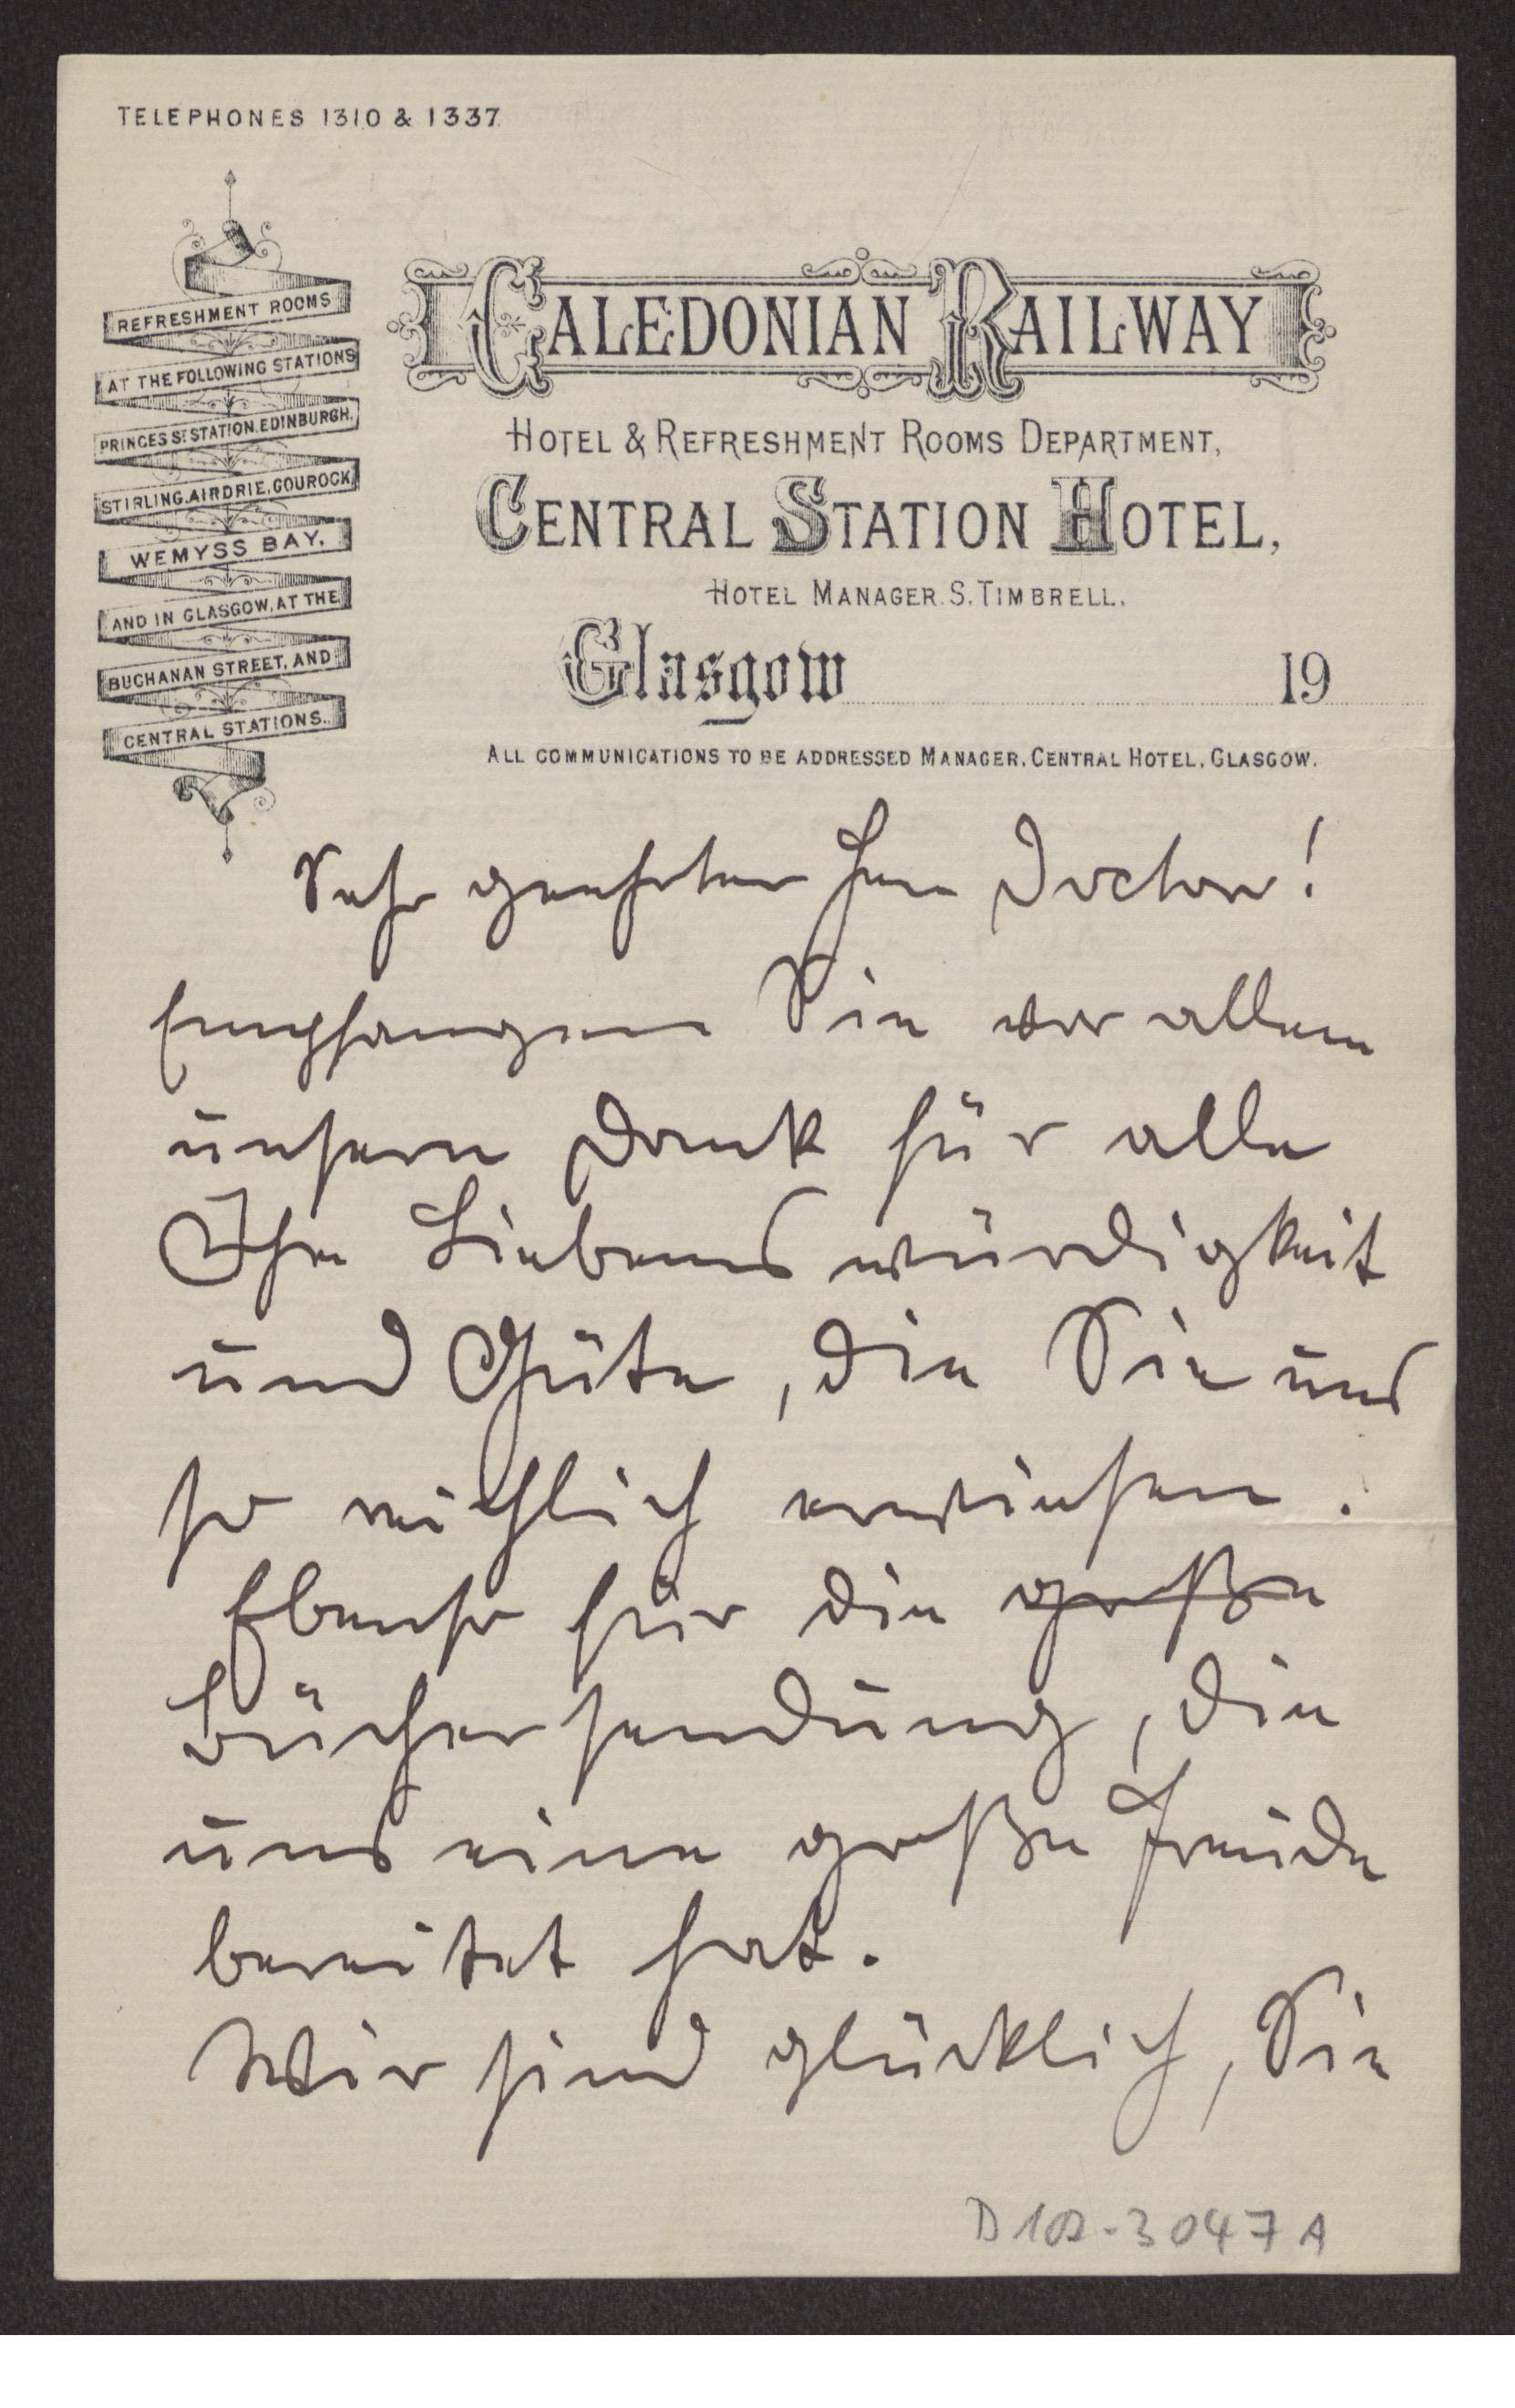 TELEPHONES 1310 & 1337
REFRESHMENT ROOMS
AT THE FOLLOWING STATIONS
PRINCES ST STATION, EDINBURGH,
STIRLING, AIRDRIE, GOUROCK
WEMYSS BAY,
AND IN GLASGOW, AT THE
BUCHANAN STREET, AND
CENTRAL STATIONS.
CALEDONIAN RAILWAY
HOTEL & REFRESHMENT ROOMS DEPARTMENT,
CENTRAL STATION HOTEL,
HOTEL MANAGER S. TIMBRELL.
Glasgow 19
ALL COMMUNICATIONS TO BE ADDRESSED MANAGER, CENTRAL HOTEL, GLASGOW.
Sehr geehrter Herr Doctor!
Empfangen Sie vor allem
unsern Dank für alle
Ihre Liebenswürdigkeit
und Güte, die Sie uns
so reichlich erwiesen.
Ebenso für die große
Büchersendung, die
uns eine große Freude
bereitet hat.
Wir sind glücklich, Sie
D 102-3047 A